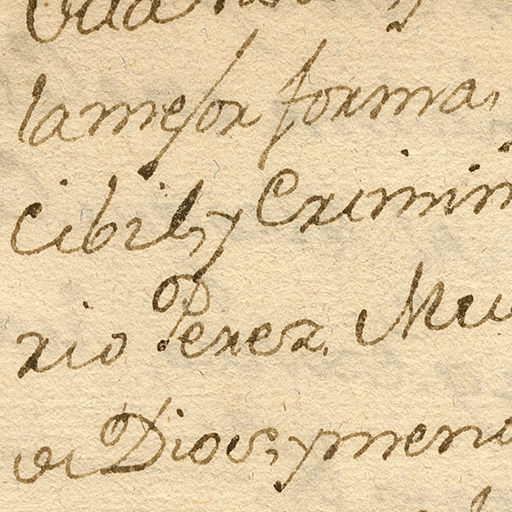 la mejor forma,
Cibil, y Crimin
rio Perez. Mu
Dios, y meno